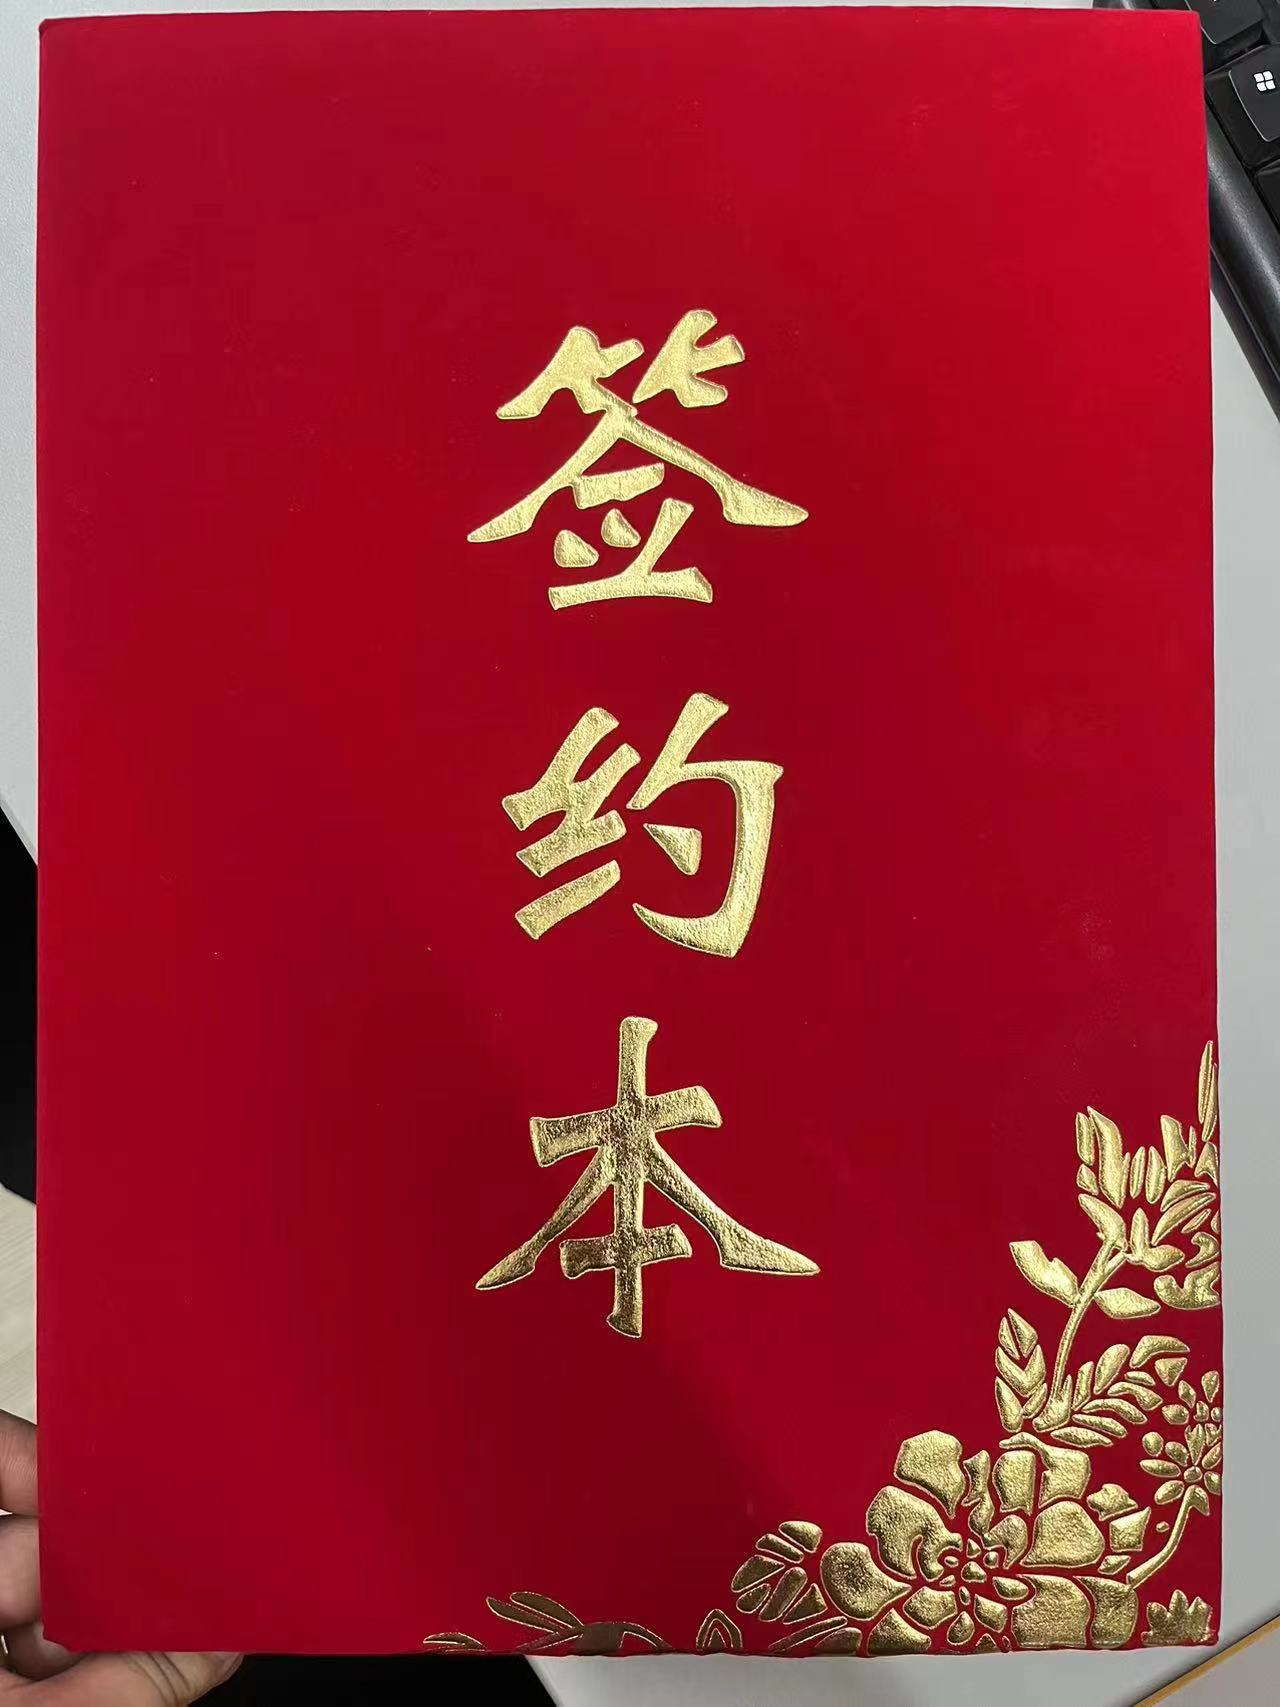 签约本